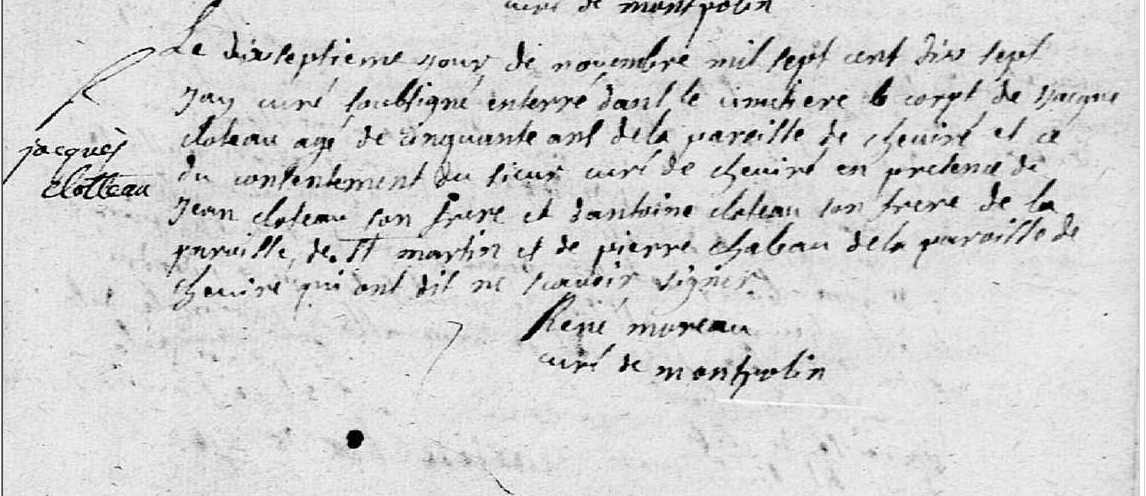 curé de montpolin
Le dixseptieme jour de novembre mil sept cent dix sept
Jay curé soubsigné enterré dans le cimetiere le corps de Jacque
cloteau agé de cinquante ans de la paroisse de cheviré et ce
jacques
du consentement du sieur curé de cheviré en presence de
clotteau
Jean cloteau son frere et dantoine cloteau son frere de la
paroisse de St martin et de pierre chaleau de la paroisse de
cheviré qui ont dit ne scavoir signer.
René moreau
curé de montpolin